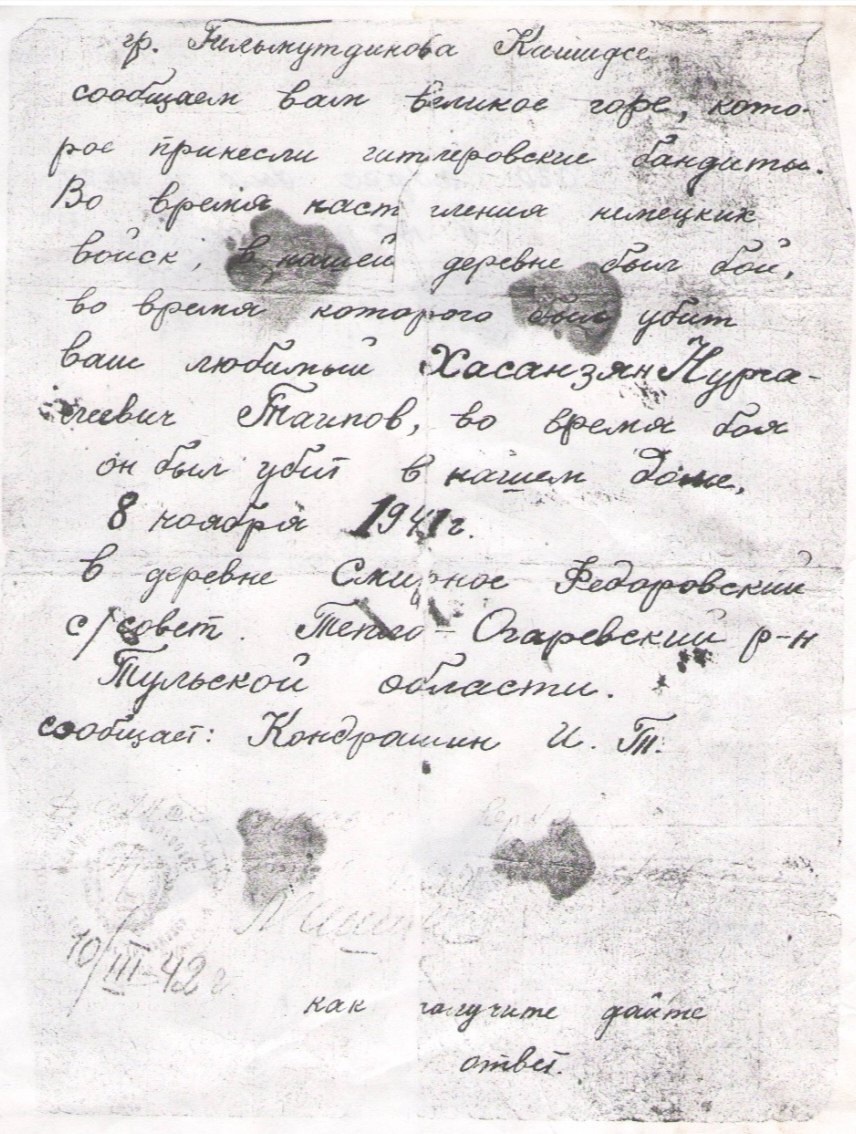 гр. Гильмутдинова Кашидсе
сообщаем вам великое горе, кото-
рое принесли гитлеровские бандиты.
Во время наст гления немецких
войск, в нашей деревне был бой,
во время которого был убит
ваш любимый Хасанзян Нурга-
леевич Таипов, во время боя
он был убит в нашем доме,
8 ноября 1941 г.
в деревне Смирное Федоровский
с/совет. Тепло-Огаревский р-н
Тульской области.
сообщает: Кондрашин И. Т.
10/III-42 г.
как получите дайте
ответ.